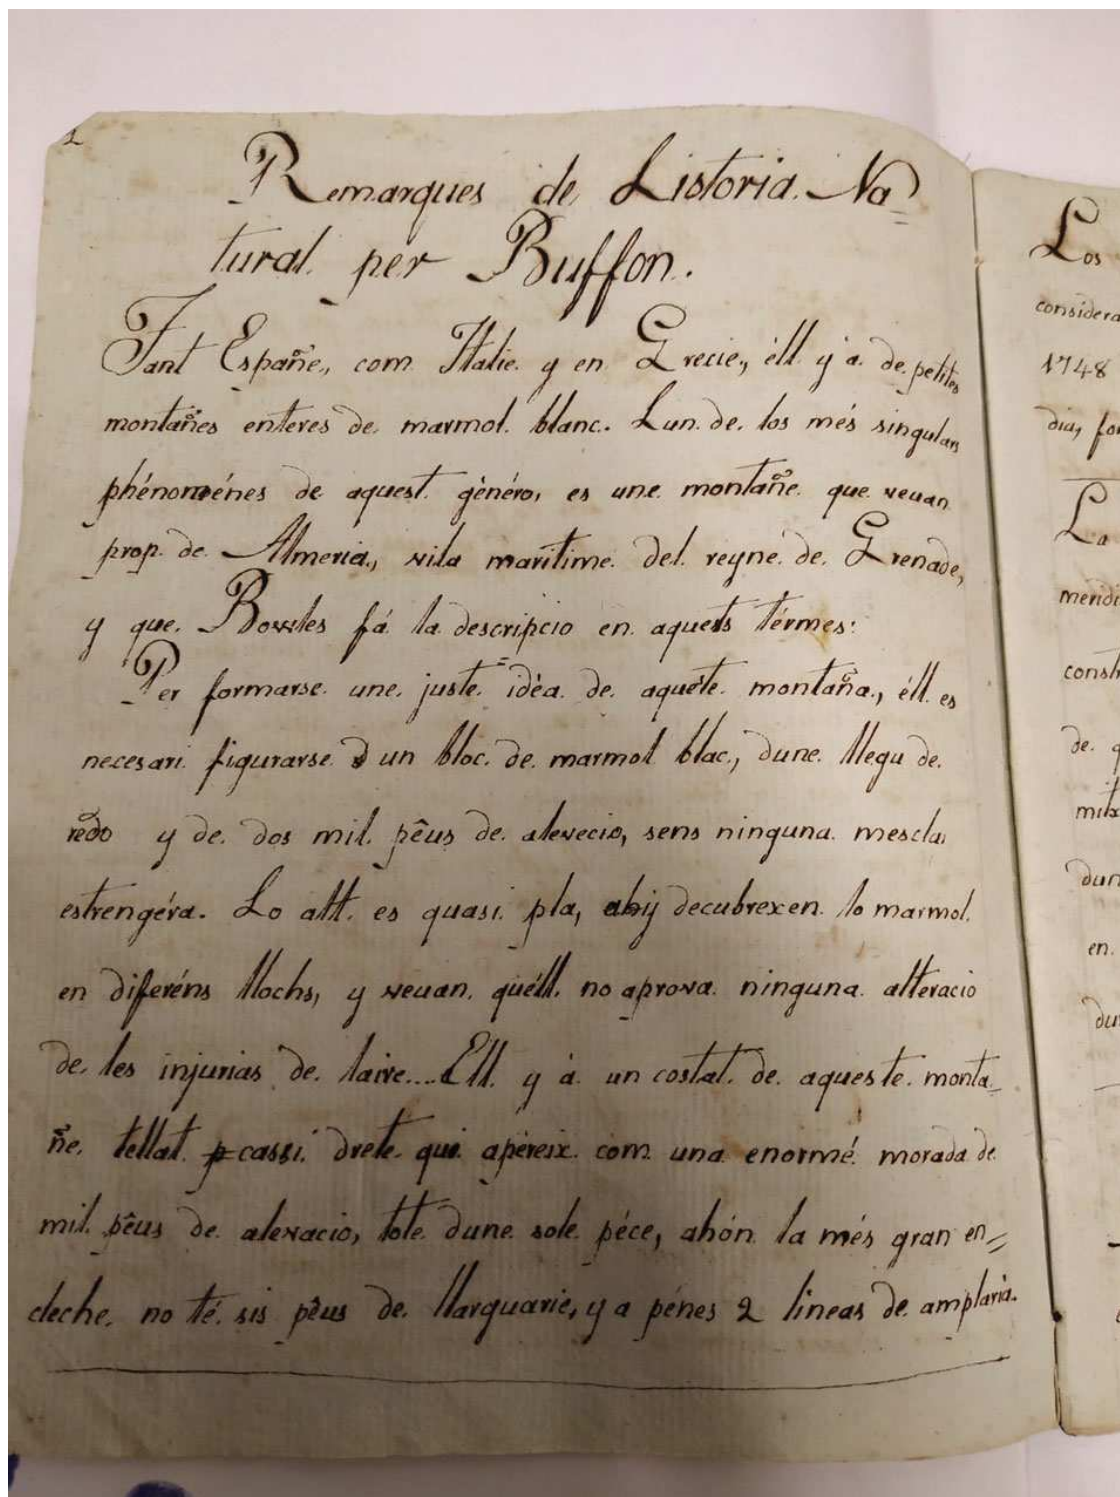 1
Remarques de Listoria. Na=
tural. per Buffon.
Tant Españe., com Italie. y en Grecie., éll y a. de. petites
montañes enteres de. marmol. blanc. Lun. de. los més singulars
phénoménes de aquest. género, es une montañe. que veuan
prop. de. Almeria., vila marítime. del. reyne. de. Grenade,
y que. Bowles fá la descripcio en aquets términes:
Per formarse. une. juste. idèa. de. aquéte. montaña., éll. es
necesari figurarse un bloc. de. marmol blac., dune. llegu de.
redo y de. dos mil. pêus de. alevecio, sens ninguna. mescla
estrengéra. Lo alt. es quasi. pla, ahij decubrexen. lo marmol.
en diferéns llochs, y veuan. quéll. no aprova. ninguna. alteracio
de. les injurias de. laire....Ell. y à un costat. de. aqueste. monta=
ñe. tallat. cassi. drete. qui apereix. com. una enormé. morada de
mil. pêus de. alevacio, tote dune sole. péce, ahón la més gran en=
cleche. no té. sis pêus de. llarguarie, y a pénes 2 líneas de. amplaria.
Los
considera
1748
dia, for
La
meridi
const
de. q
mila
dun
en.
du